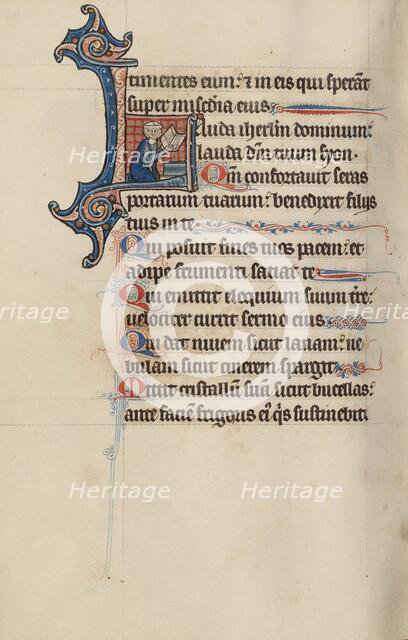 timentes eum: et in eis qui sperāt
super misc̄dia eius
Lauda iherl̄m dominum:
lauda dm̄ tuum syon
Qm̄ confortauit seras
portarum tuarum: benedixit filijs
tuis in te
Qui posuit fines tuos pacem: et
adipe frumenti saciat te
Qui emittit eloquium suum tr̄e:
uelociter currit sermo eius
Qui dat niuem sicut lanam: ne
bulam sicut cinerem spargit
Mittit cristallū suā sicut bucellas:
ante faciē frigoris eiꝰ q̄s sustinebit
Heritage
Heritage
Heritage
Heritage
Heritage
Heritage